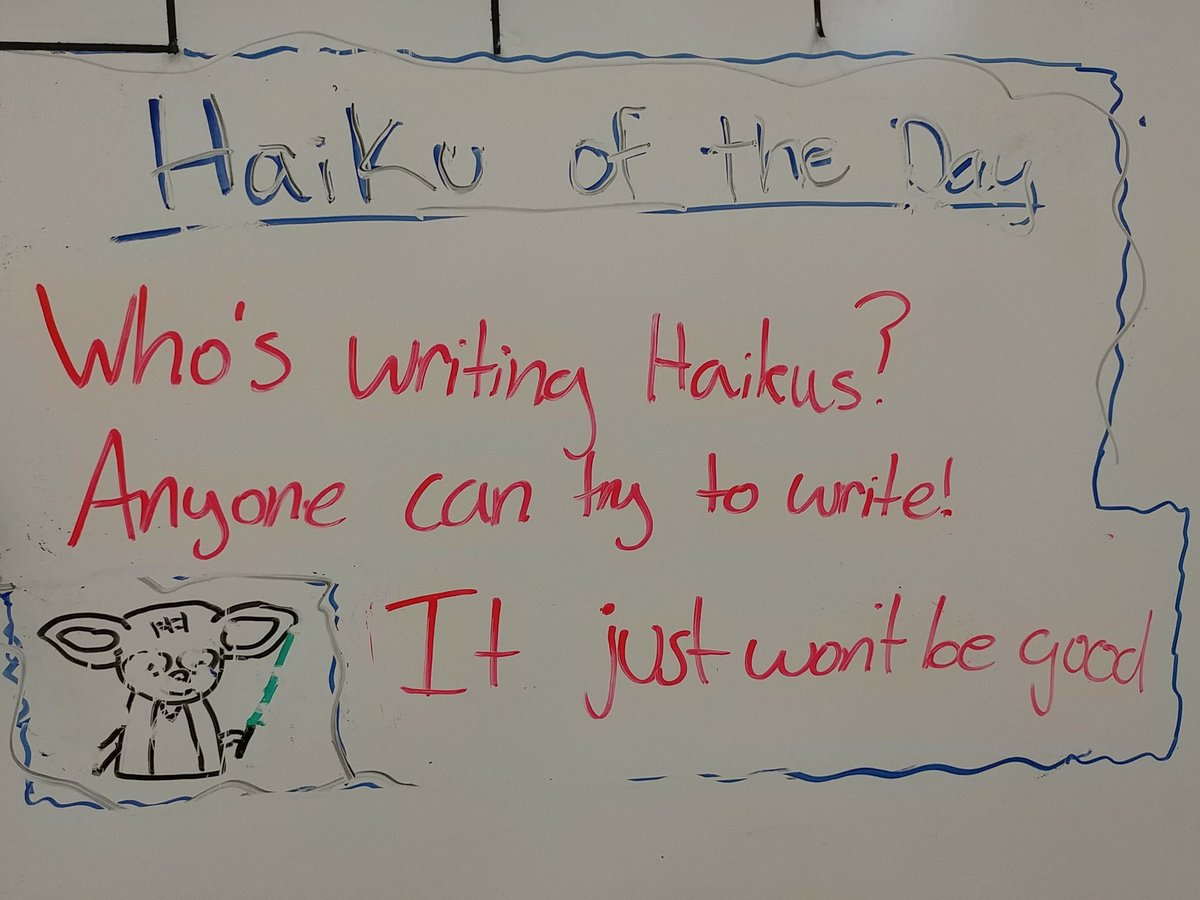 Haiku of the Day
Who's writing Haikus?
Anyone can try to write!
It just won't be good